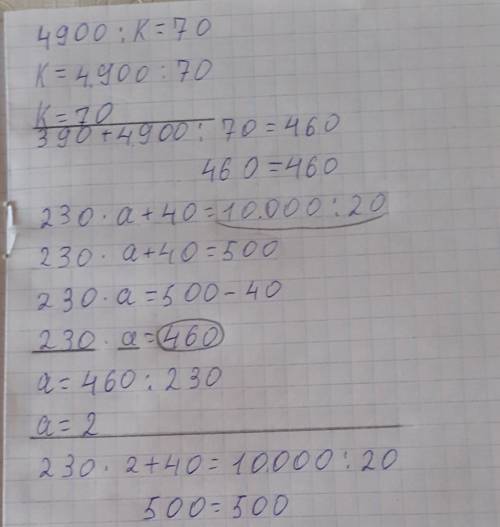 4900 : K = 70
K = 4.900 : 70
K = 70
390 + 4.900 : 70 = 460
460 = 460
230 · a + 40 = 10.000 : 20
230 · a + 40 = 500
230 · a = 500 - 40
230 · a = 460
a = 460 : 230
a = 2
230 · 2 + 40 = 10.000 : 20
500 = 500